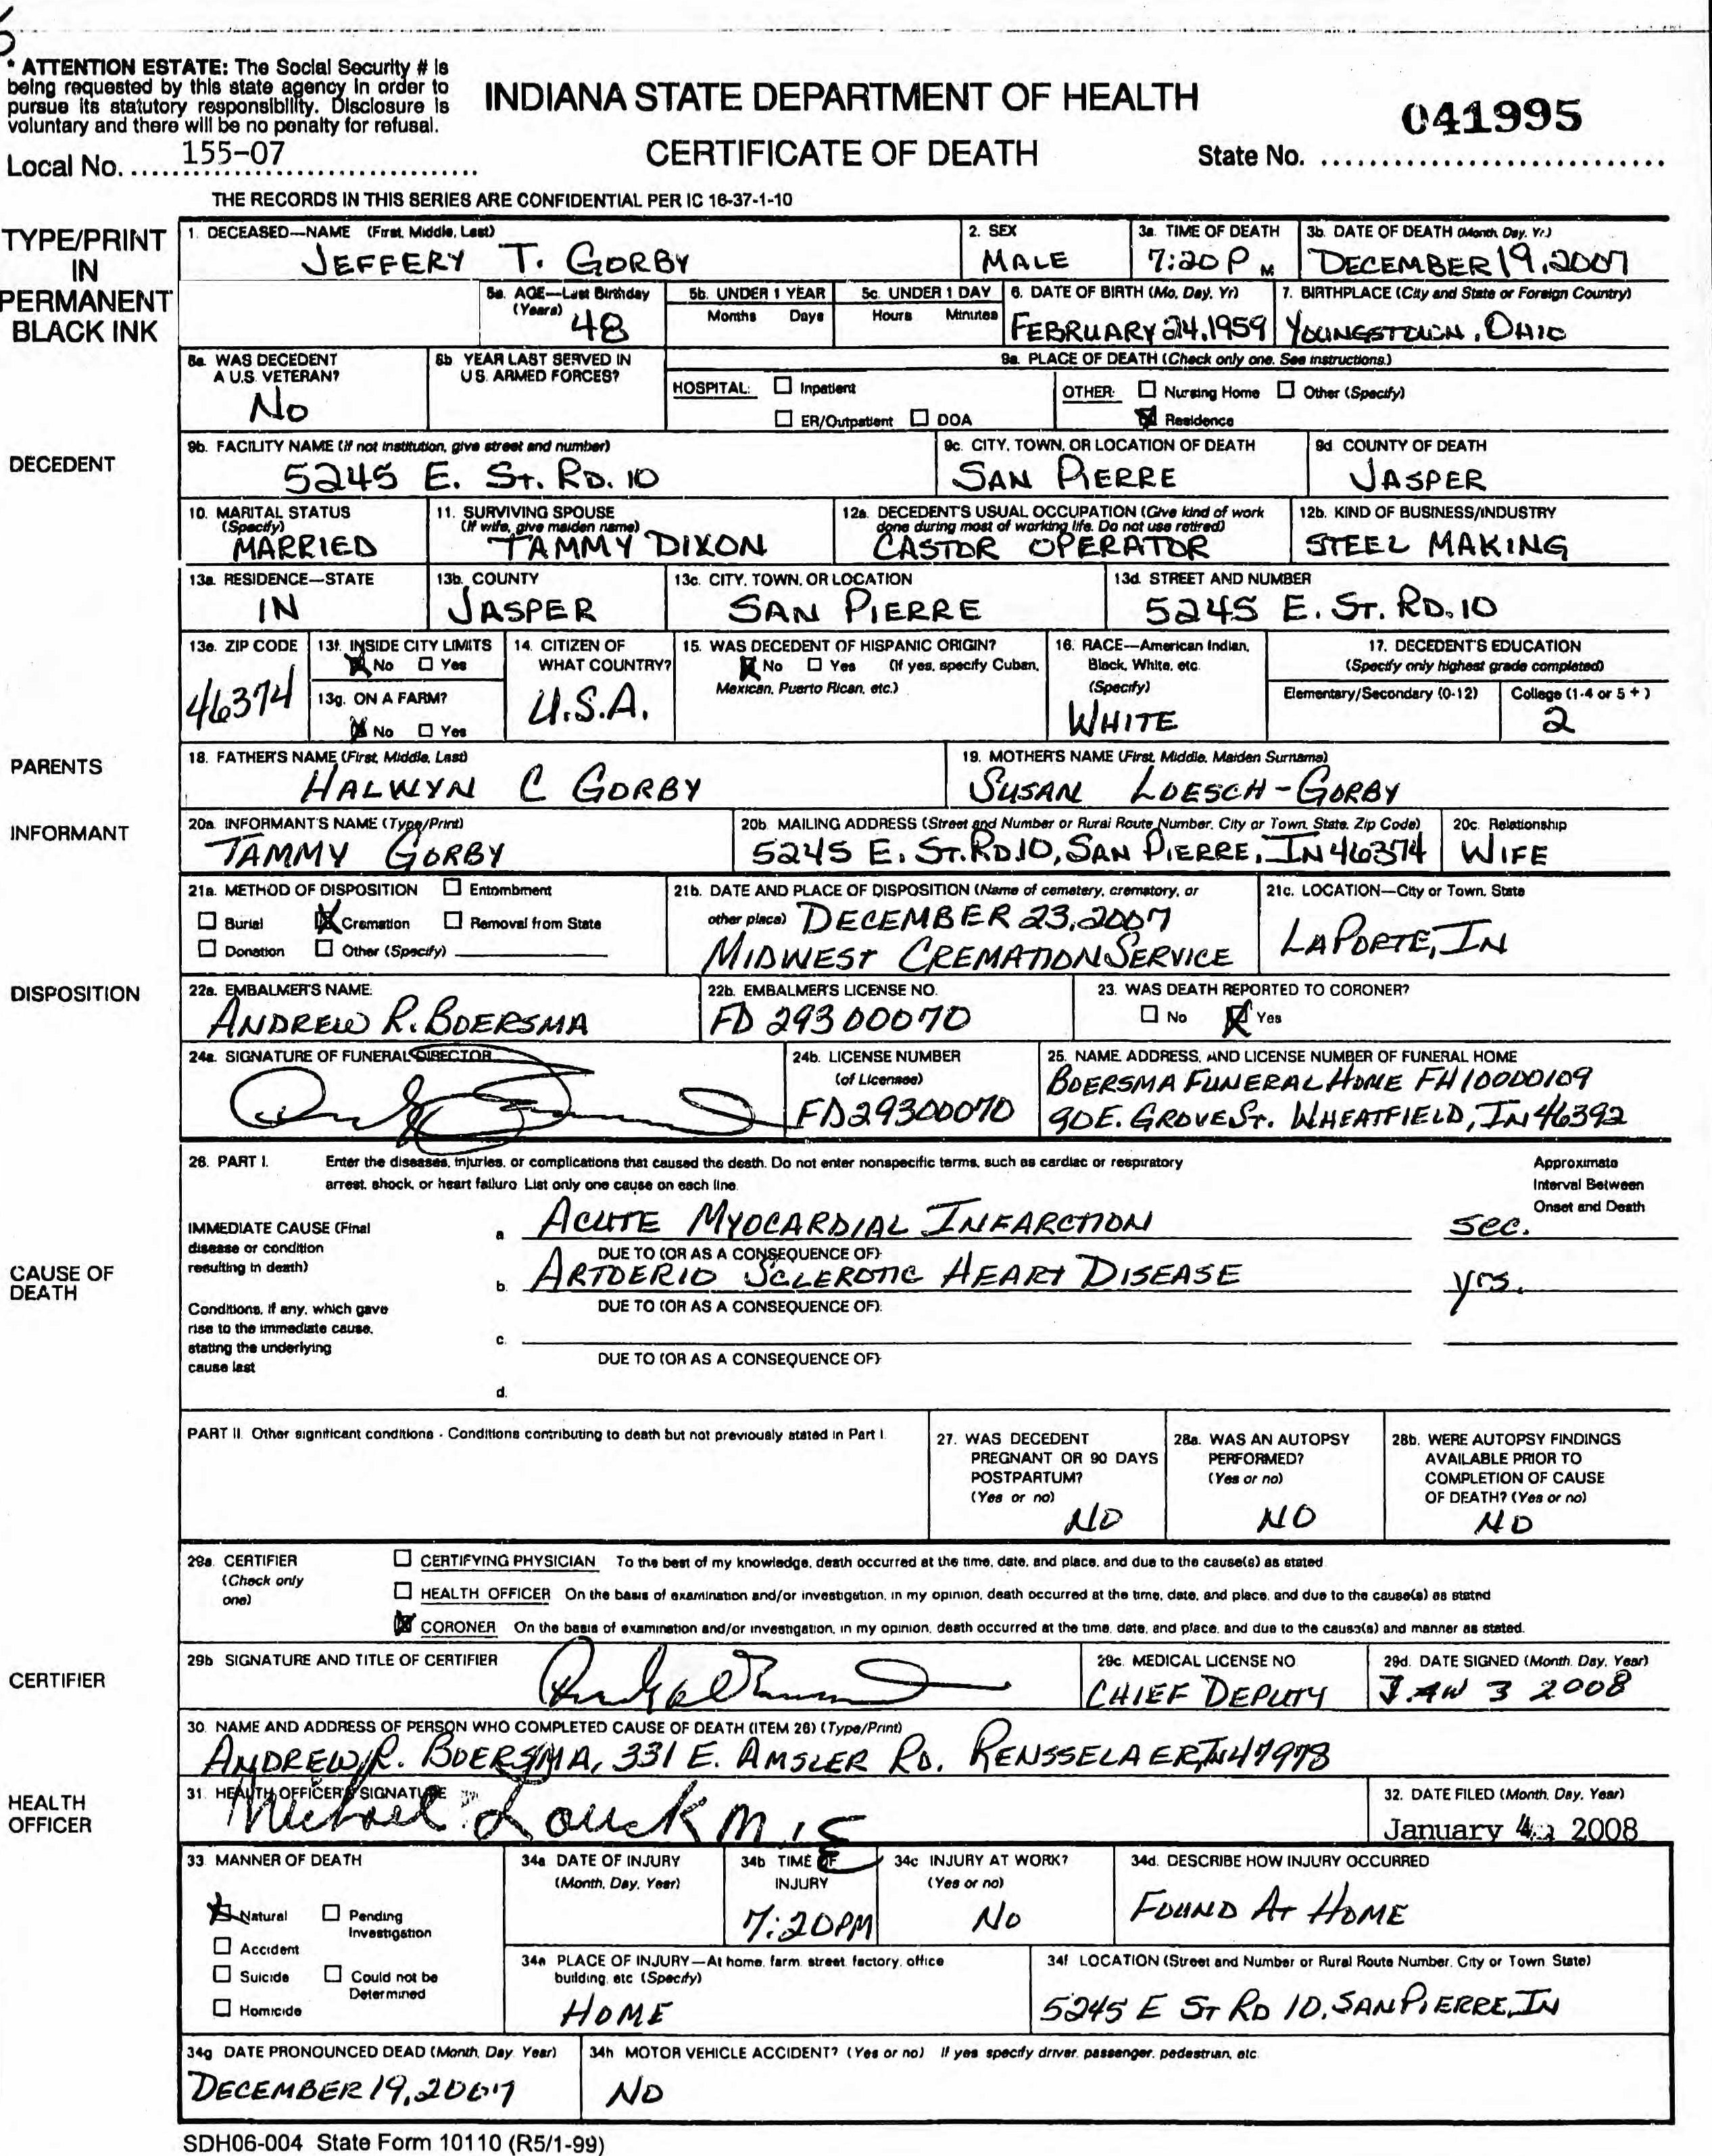 * ATTENTION ESTATE: The Social Security # is
being requested by this state agency in order to
pursue its statutory responsibility. Disclosure is
voluntary and there will be no penalty for refusal.
INDIANA STATE DEPARTMENT OF HEALTH
CERTIFICATE OF DEATH
041995
Local No. 155-07
State No.
THE RECORDS IN THIS SERIES ARE CONFIDENTIAL PER IC 16-37-1-10
TYPE/PRINT
IN
PERMANENT
BLACK INK
1. DECEASED—NAME (First, Middle, Last)
JEFFERY T. GORBY
2. SEX
MALE
3a. TIME OF DEATH
7:20 P M
3b. DATE OF DEATH (Month, Day, Yr.)
DECEMBER 19, 2007
5a. AGE—Last Birthday
(Years)
48
5b. UNDER 1 YEAR
Months Days
5c. UNDER 1 DAY
Hours Minutes
6. DATE OF BIRTH (Mo, Day, Yr)
FEBRUARY 24, 1959
7. BIRTHPLACE (City and State or Foreign Country)
YOUNGSTOWN, OHIO
8a. WAS DECEDENT
A U.S. VETERAN?
No
8b YEAR LAST SERVED IN
U S. ARMED FORCES?
9a. PLACE OF DEATH (Check only one. See instructions.)
HOSPITAL: Inpatient
ER/Outpatient DOA
OTHER: Nursing Home Other (Specify)
Residence
DECEDENT
9b. FACILITY NAME (If not institution, give street and number)
5245 E. St. RD. 10
9c. CITY, TOWN, OR LOCATION OF DEATH
SAN PIERRE
9d COUNTY OF DEATH
JASPER
10. MARITAL STATUS
(Specify)
MARRIED
11. SURVIVING SPOUSE
(If wife, give maiden name)
TAMMY DIXON
12a. DECEDENT'S USUAL OCCUPATION (Give kind of work
done during most of working life. Do not use retired)
CASTOR OPERATOR
12b. KIND OF BUSINESS/INDUSTRY
STEEL MAKING
13a. RESIDENCE—STATE
IN
13b. COUNTY
JASPER
13c. CITY, TOWN, OR LOCATION
SAN PIERRE
13d. STREET AND NUMBER
5245 E. ST. RD. 10
13e. ZIP CODE
46374
13f. INSIDE CITY LIMITS
No Yes
13g. ON A FARM?
No Yes
14. CITIZEN OF
WHAT COUNTRY?
U.S.A.
15. WAS DECEDENT OF HISPANIC ORIGIN?
No Yes (If yes, specify Cuban,
Mexican, Puerto Rican, etc.)
16. RACE—American Indian,
Black, White, etc.
(Specify)
WHITE
17. DECEDENT'S EDUCATION
(Specify only highest grade completed)
Elementary/Secondary (0-12) College (1-4 or 5 + )
2
PARENTS
18. FATHER'S NAME (First, Middle, Last)
HALWYN C GORBY
19. MOTHER'S NAME (First, Middle, Maiden Surname)
SUSAN LOESCH-GORBY
INFORMANT
20a. INFORMANT'S NAME (Type/Print)
TAMMY GORBY
20b. MAILING ADDRESS (Street and Number or Rural Route Number, City or Town, State, Zip Code)
5245 E. ST. RD 10, SAN PIERRE, IN 46374
20c. Relationship
WIFE
21a. METHOD OF DISPOSITION Entombment
Burial Cremation Removal from State
Donation Other (Specify)
21b. DATE AND PLACE OF DISPOSITION (Name of cemetery, crematory, or
other place) DECEMBER 23, 2007
MIDWEST CREMATION SERVICE
21c. LOCATION—City or Town, State
LAPORTE, IN
DISPOSITION
22a. EMBALMER'S NAME:
ANDREW R. BOERSMA
22b. EMBALMER'S LICENSE NO.
FD 29300070
23. WAS DEATH REPORTED TO CORONER?
No Yes
24a. SIGNATURE OF FUNERAL DIRECTOR
24b. LICENSE NUMBER
(of Licensee)
FD29300070
25. NAME, ADDRESS, AND LICENSE NUMBER OF FUNERAL HOME
BOERSMA FUNERAL HOME FH10000109
90 E. GROVE ST. WHEATFIELD, IN 46392
26. PART I. Enter the diseases, injuries, or complications that caused the death. Do not enter nonspecific terms, such as cardiac or respiratory
arrest, shock, or heart failure. List only one cause on each line.
Approximate
Interval Between
Onset and Death
CAUSE OF
DEATH
IMMEDIATE CAUSE (Final
disease or condition
resulting in death)
a ACUTE MYOCARDIAL INFARCTION sec.
DUE TO (OR AS A CONSEQUENCE OF):
b. ARTOERIO SCLEROTIC HEART DISEASE yrs.
Conditions, if any, which gave
rise to the immediate cause,
stating the underlying
cause last
DUE TO (OR AS A CONSEQUENCE OF):
c.
DUE TO (OR AS A CONSEQUENCE OF):
d.
PART II. Other significant conditions - Conditions contributing to death but not previously stated in Part I.
27. WAS DECEDENT
PREGNANT OR 90 DAYS
POSTPARTUM?
(Yes or no)
NO
28a. WAS AN AUTOPSY
PERFORMED?
(Yes or no)
NO
28b. WERE AUTOPSY FINDINGS
AVAILABLE PRIOR TO
COMPLETION OF CAUSE
OF DEATH? (Yes or no)
NO
29a. CERTIFIER
(Check only
one)
CERTIFYING PHYSICIAN To the best of my knowledge, death occurred at the time, date, and place, and due to the cause(s) as stated.
HEALTH OFFICER On the basis of examination and/or investigation, in my opinion, death occurred at the time, date, and place, and due to the cause(s) as stated
CORONER On the basis of examination and/or investigation, in my opinion, death occurred at the time, date, and place, and due to the cause(s) and manner as stated.
CERTIFIER
29b SIGNATURE AND TITLE OF CERTIFIER
29c. MEDICAL LICENSE NO.
CHIEF DEPUTY
29d. DATE SIGNED (Month, Day, Year)
JAN 3 2008
30. NAME AND ADDRESS OF PERSON WHO COMPLETED CAUSE OF DEATH (ITEM 26) (Type/Print)
ANDREW R. BOERSMA, 331 E. AMSLER RD. RENSSELAER, IN 47978
HEALTH
OFFICER
31. HEALTH OFFICER'S SIGNATURE
Michael Louck
32. DATE FILED (Month, Day, Year)
January 4, 2008
33. MANNER OF DEATH
Natural Pending
Investigation
Accident
Suicide Could not be
Determined
Homicide
34a DATE OF INJURY
(Month, Day, Year)
34b TIME OF
INJURY
7:20PM
34c INJURY AT WORK?
(Yes or no)
No
34d. DESCRIBE HOW INJURY OCCURRED
FOUND AT HOME
34e PLACE OF INJURY—At home, farm, street, factory, office
building, etc (Specify)
HOME
34f LOCATION (Street and Number or Rural Route Number, City or Town State)
5245 E ST RD 10, SAN PIERRE, IN
34g DATE PRONOUNCED DEAD (Month, Day, Year)
DECEMBER 19, 2007
34h MOTOR VEHICLE ACCIDENT? (Yes or no) If yes specify driver, passenger, pedestrian, etc.
NO
SDH06-004 State Form 10110 (R5/1-99)